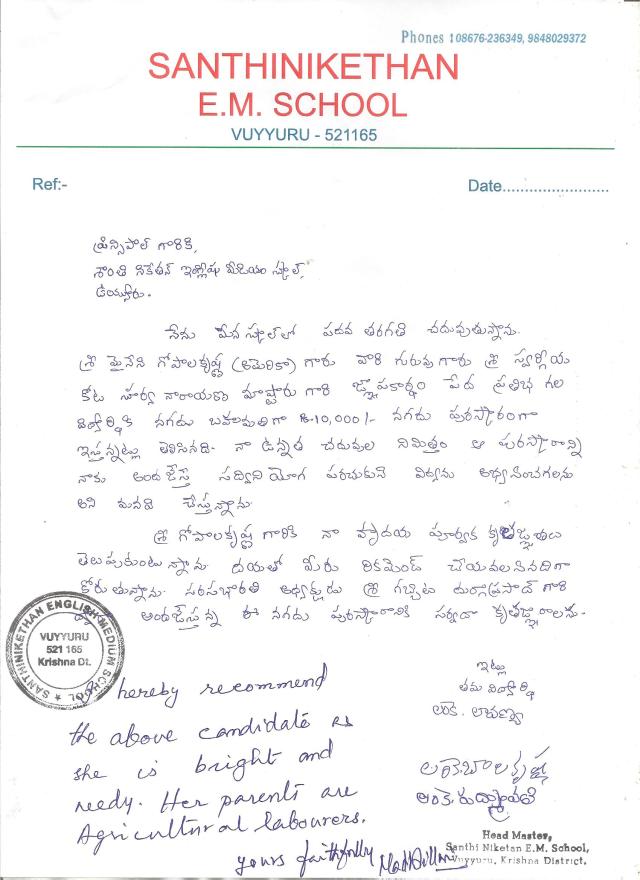 Phones : 08676-236349, 9848029372
SANTHINIKETHAN
E.M. SCHOOL
VUYYURU - 521165
Ref:-
Date........................
ప్రిన్సిపాల్ గారికి,
శాంతి నికేతన్ ఇంగ్లీషు మీడియం స్కూల్,
ఉయ్యూరు.
నేను మీ స్కూల్‌లో పదవ తరగతి చదువుతున్నాను.
శ్రీ మైనేని గోపాలకృష్ణ (అమెరికా) గారు వారి గురువు గారు శ్రీ స్వర్గీయ
కోట సూర్య నారాయణ మాష్టారు గారి జ్ఞాపకార్థం పేద ప్రతిభ గల
విద్యార్థికి నగదు బహుమతిగా రు.10,000/- నగదు పురస్కారంగా
ఇస్తున్నట్లు తెలిసినది. నా ఉన్నత చదువుల నిమిత్తం ఆ పురస్కారాన్ని
నాకు అందజేస్తే సద్వినియోగ పరచుకుని విద్యను అభ్యసించగలను
అని మనవి చేస్తున్నాను.
శ్రీ గోపాలకృష్ణ గారికి నా హృదయ పూర్వక కృతజ్ఞతలు
తెలుపుకుంటున్నాను. దయతో మీరు రికమెండ్ చేయవలసినదిగా
కోరుతున్నాను. సరసభారతి అధ్యక్షుడు శ్రీ గబ్బిట దుర్గాప్రసాద్ గారి
అందజేస్తున్న ఈ నగదు పురస్కారానికి సర్వదా కృతజ్ఞురాలను.
SANTHINIKETHAN ENGLISH MEDIUM SCHOOL
VUYYURU
521 165
Krishna Dt.
ఇట్లు
తమ విద్యార్థి
ఆర్.కె. లావణ్య
hereby recommend
the above candidate as
she is bright and
needy. Her parents are
Agricultural labourers.
yours faithfully
ఆర్.కె.బాలకృష్ణ
Head Master,
Santhi Niketan E.M. School,
Vuyyuru, Krishna District.